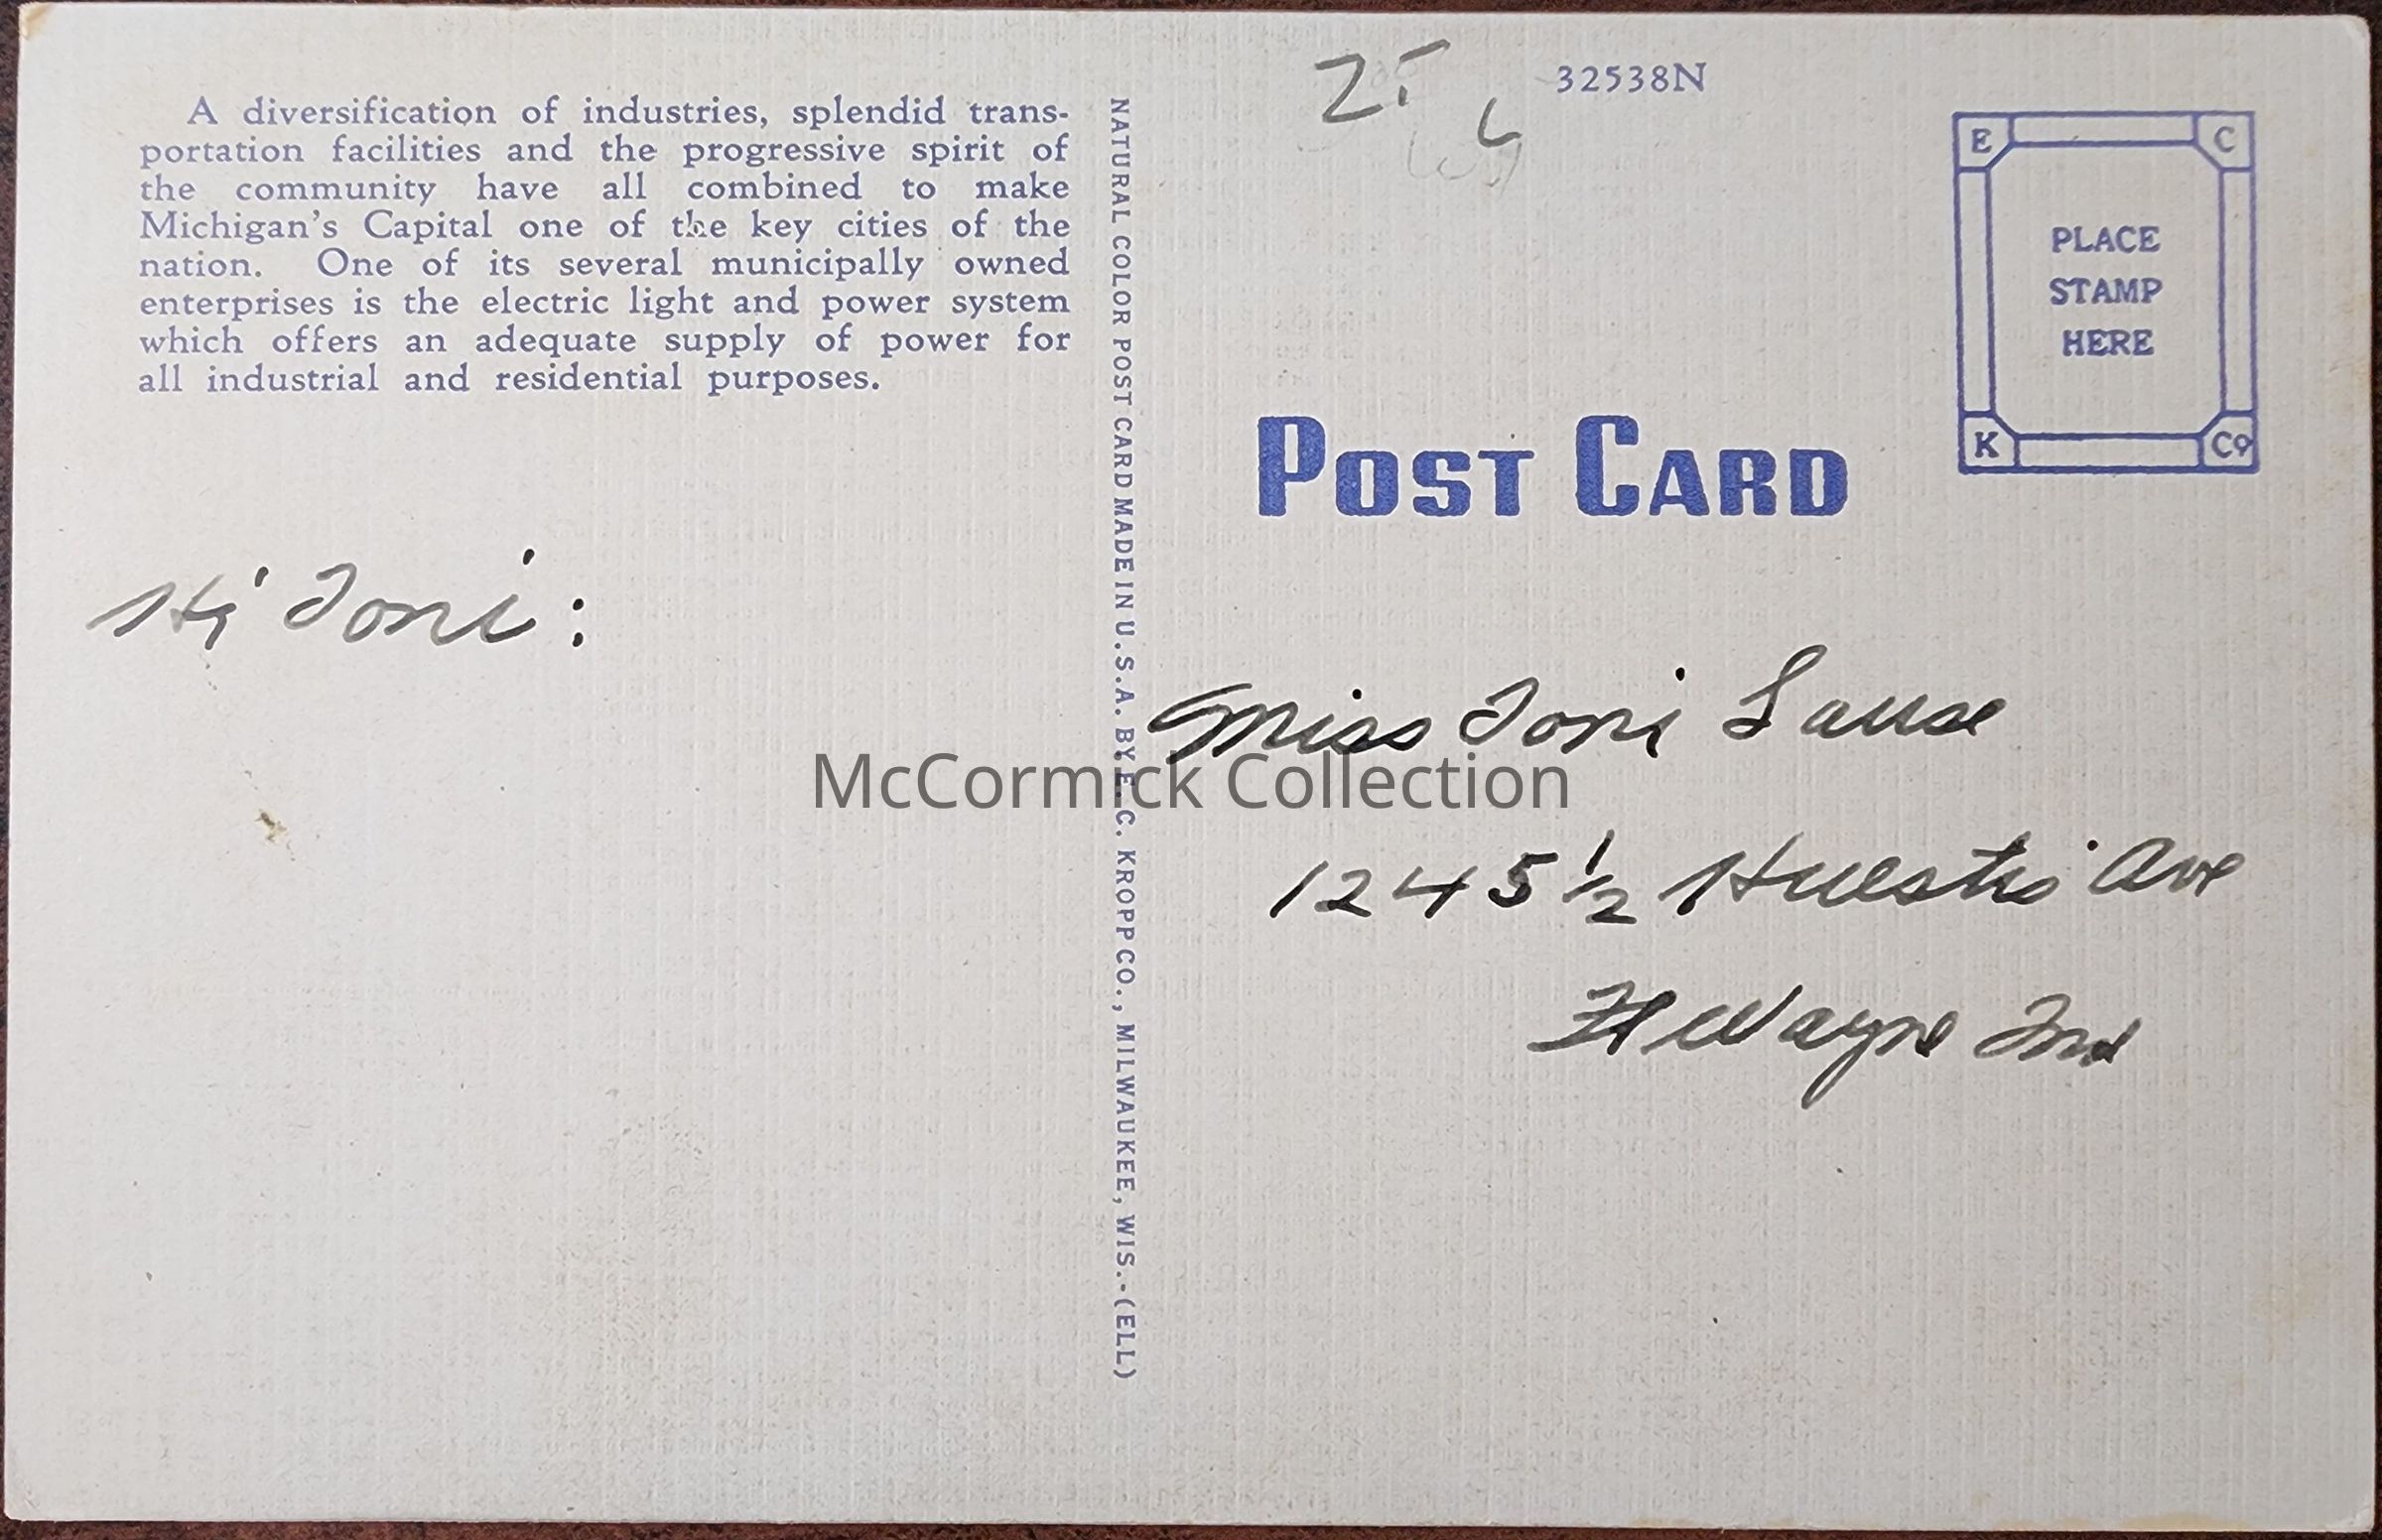 A diversification of industries, splendid trans-
portation facilities and the progressive spirit of
the community have all combined to make
Michigan's Capital one of the key cities of the
nation. One of its several municipally owned
enterprises is the electric light and power system
which offers an adequate supply of power for
all industrial and residential purposes.
Hi Toni:
NATURAL COLOR POST CARD MADE IN U.S.A. BY E. C. KROPP CO., MILWAUKEE, WIS.-(ELL)
32538N
E C
PLACE
STAMP
HERE
K Co
POST CARD
Miss Toni Lause
1245 1/2 Huestis Ave
Ft Wayne Ind
McCormick Collection